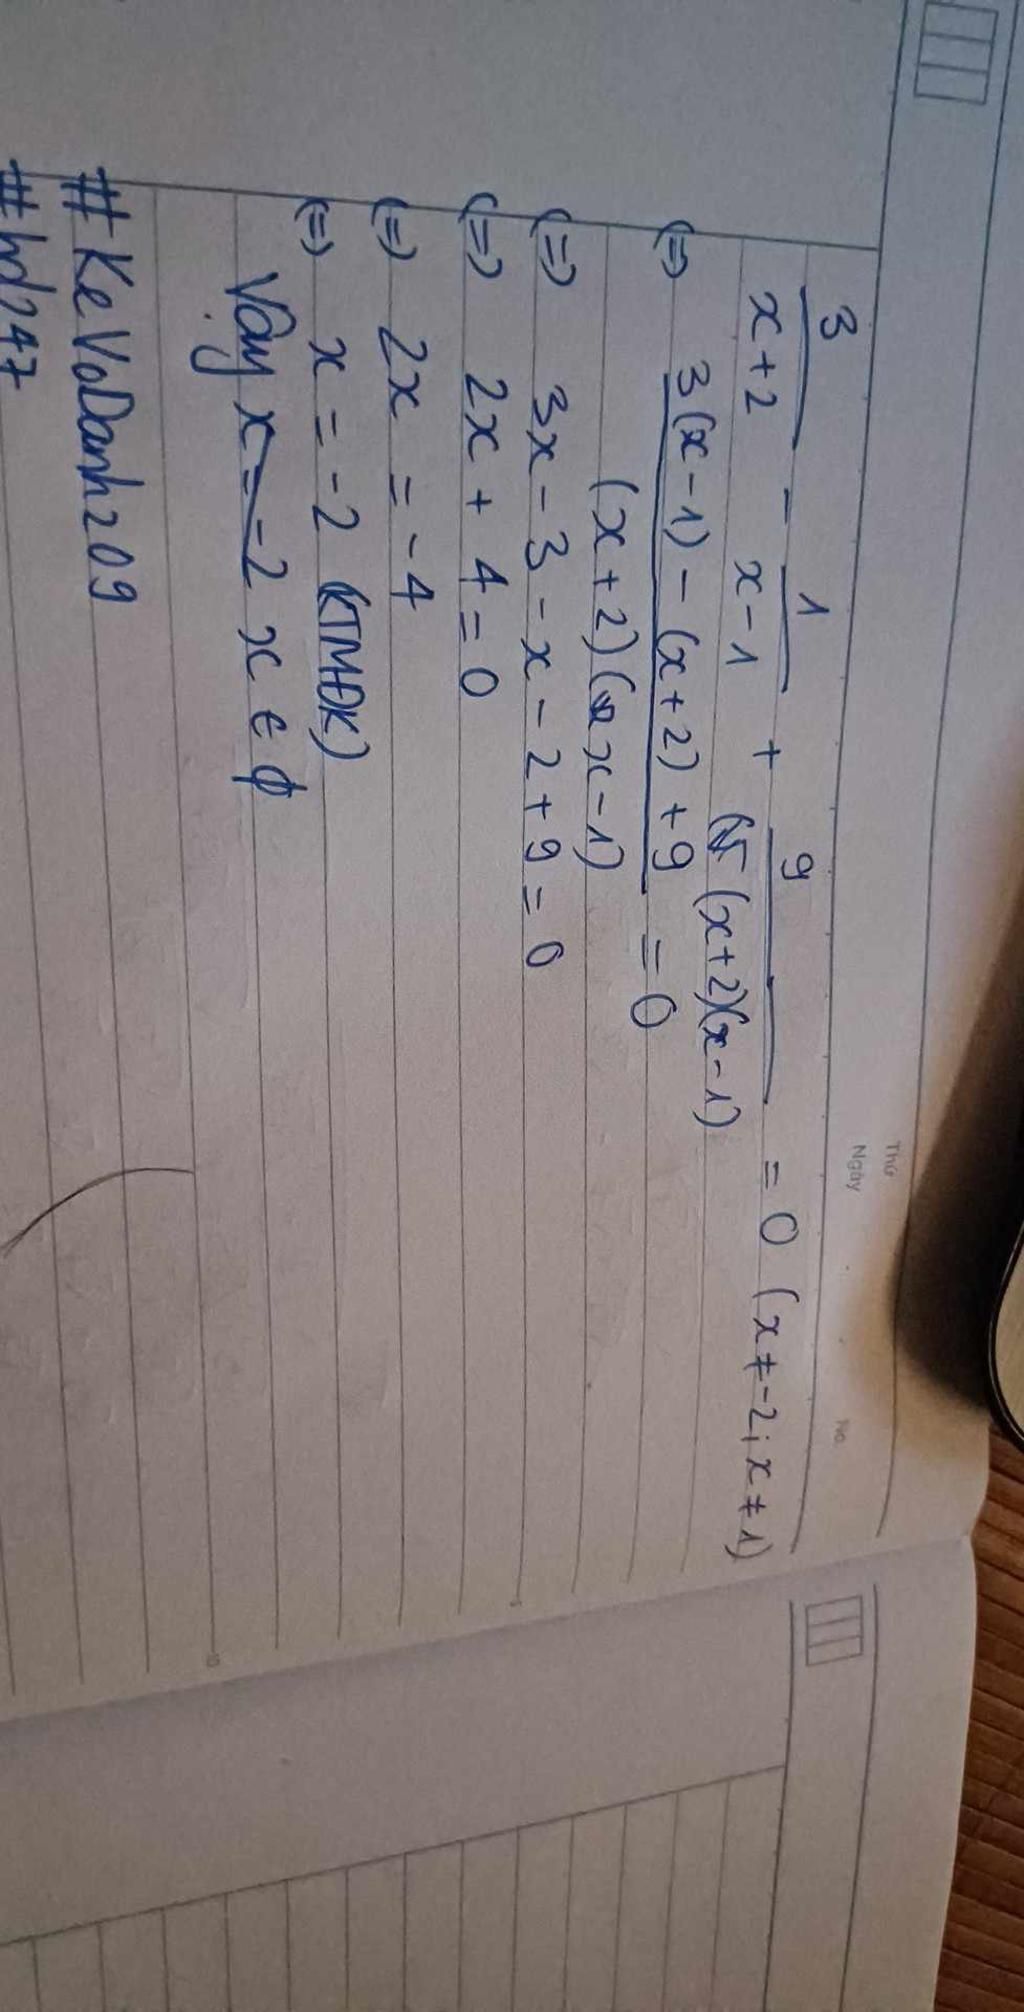 Thứ
Ngày
No.
3/(x+2) - 1/(x-1) + 9/((x+2)(x-1)) = 0 (x ≠ -2; x ≠ 1)
(=) (3(x-1) - (x+2) + 9)/((x+2)(x-1)) = 0
(=) 3x - 3 - x - 2 + 9 = 0
(=) 2x + 4 = 0
(=) 2x = -4
(=) x = -2 (KTMĐK)
Vậy x = -2 x ∈ ϕ
10
#KeVoDanh209
#hd247